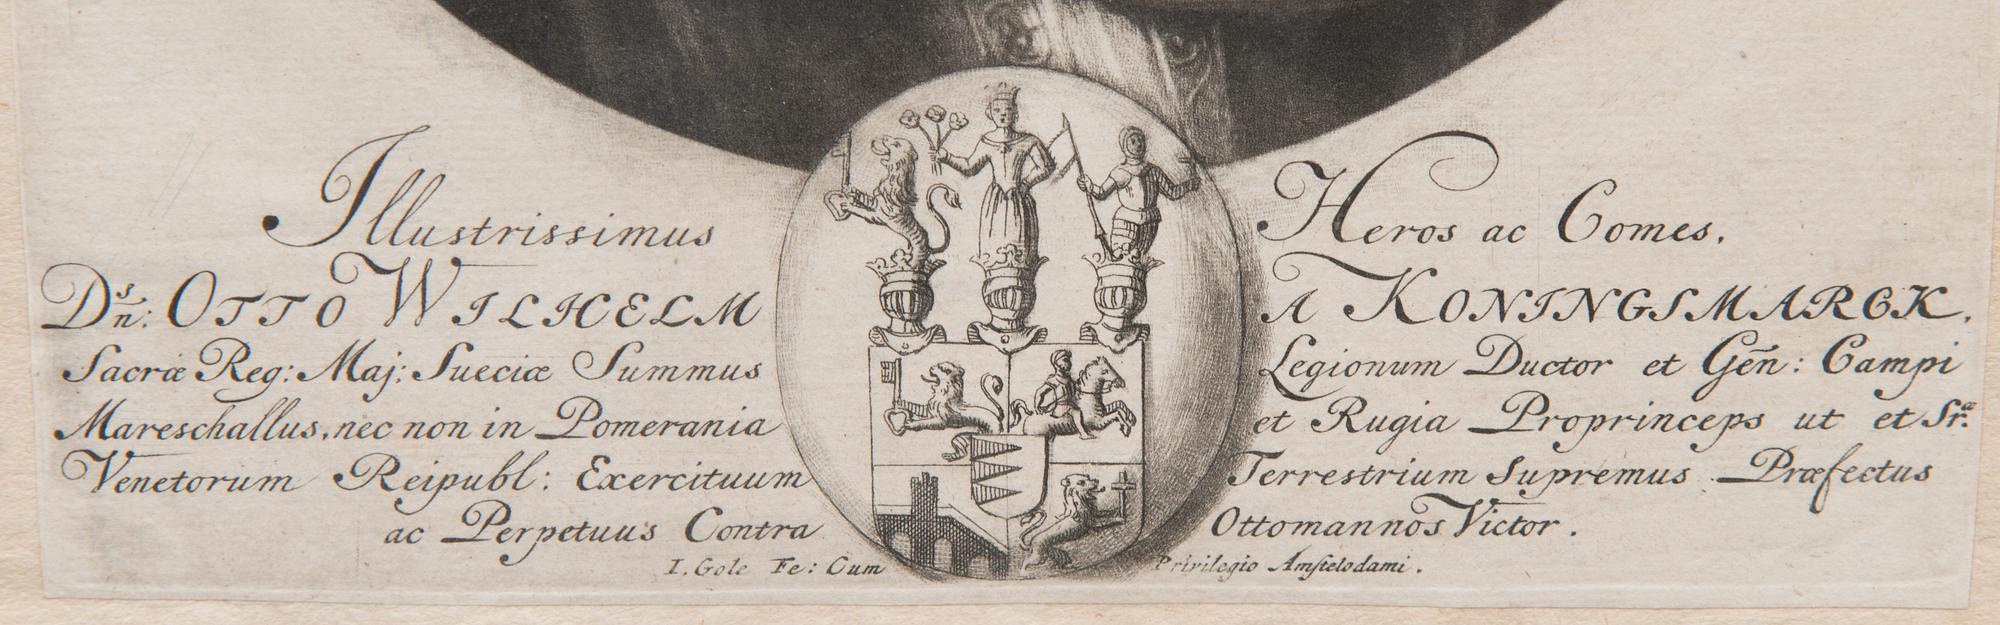 Illustrissimus Heros ac Comes.
Dn̄s: OTTO WILHELM A KONINGSMARCK,
Sacræ Reg: Maj: Sueciæ Summus Legionum Ductor et Gēn: Campi
Mareschallus, nec non in Pomerania et Rugia Proprinceps ut et Sr.æ
Venetorum Reipubl: Exercituum Terrestrium Supremus Præfectus
ac Perpetuus Contra Ottomannos Victor.
I. Gole Fe: Cum Privilegio Amstelodami.